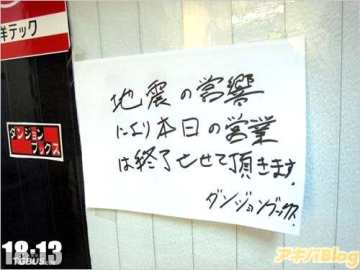 テック
地震の営響
により本日の営業
は終了させて頂きます。
ダンジョンブックス
ダンジョン
ブックス
18:13
TGBUS
アキバBlog